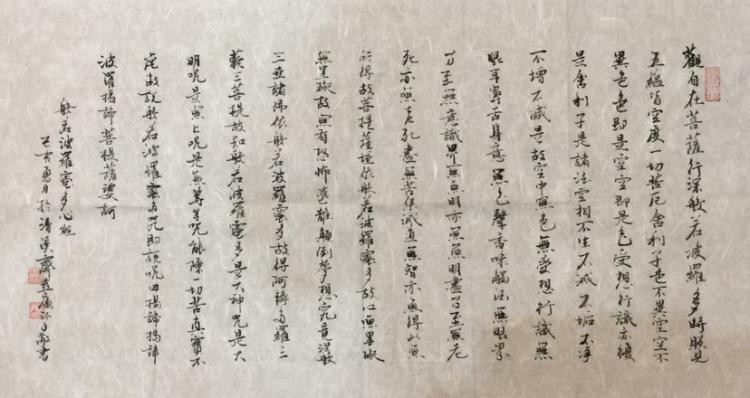 觀自在菩薩行深般若波羅多時照見
五蘊皆空度一切苦厄舍利子色不異空空不
異色色即是空空即是色受想行識亦復
是舍利子是諸法空相不生不滅不垢不淨
不增不減是故空中無色無受想行識無
眼耳鼻舌身意無色聲香味觸法無眼界
乃至無意識界無無明亦無無明盡乃至無老
死亦無老死盡無苦集滅道無智亦無得以無
所得故菩提薩埵依般若波羅蜜多故心無罣礙
無罣礙故無有恐怖遠離顛倒夢想究竟涅槃
三世諸佛依般若波羅蜜多故得阿耨多羅三
藐三菩提故知般若波羅蜜多是大神咒是大
明呪是無上呪是無等等呪能除一切苦真實不
虛故說般若波羅蜜多咒即說呪曰揭諦揭諦
波羅揭諦菩提薩婆訶
般若波羅蜜多心經
己亥月於清溪齋書